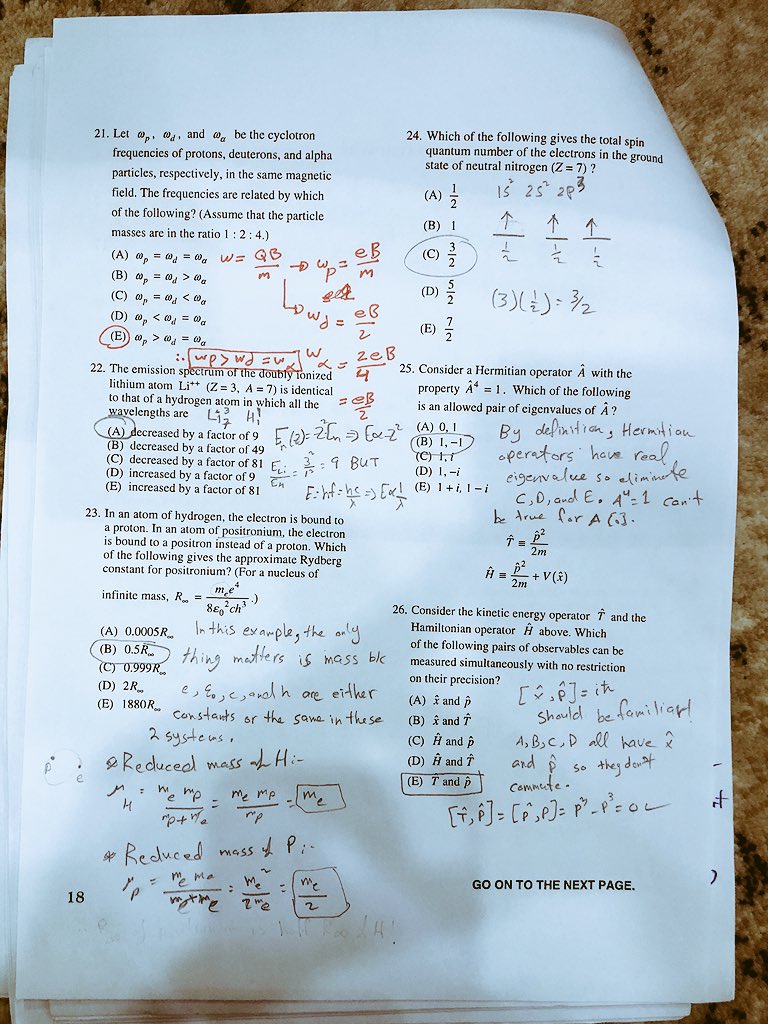 21. Let ωp, ωd, and ωα be the cyclotron
frequencies of protons, deuterons, and alpha
particles, respectively, in the same magnetic
field. The frequencies are related by which
of the following? (Assume that the particle
masses are in the ratio 1 : 2 : 4.)
(A) ωp = ωd = ωα
(B) ωp = ωd > ωα
(C) ωp = ωd < ωα
(D) ωp < ωd = ωα
(E) ωp > ωd = ωα
w = QB/m → wp = eB/m
wd = eB/2
wα = 2eB/4
= eB/2
∴ wp > wd = wα
22. The emission spectrum of the doubly ionized
lithium atom Li++ (Z = 3, A = 7) is identical
to that of a hydrogen atom in which all the
wavelengths are
(A) decreased by a factor of 9
(B) decreased by a factor of 49
(C) decreased by a factor of 81
(D) increased by a factor of 9
(E) increased by a factor of 81
En(z) = Z²En ⇒ E∝Z²
ELi/EH = 3²/1² = 9 BUT
E=hf=hc/λ ⇒ E∝1/λ
23. In an atom of hydrogen, the electron is bound to
a proton. In an atom of positronium, the electron
is bound to a positron instead of a proton. Which
of the following gives the approximate Rydberg
constant for positronium? (For a nucleus of
infinite mass, R∞ = mee⁴/8ε0²ch³.)
(A) 0.0005R∞
(B) 0.5R∞
(C) 0.999R∞
(D) 2R∞
(E) 1880R∞
In this example, the only
thing matters is mass b/c
e, ε0, c, and h are either
constants or the same in these
2 systems.
P e
Reduced mass of H:-
μH = me mp/mp+me = me mp/mp = me
Reduced mass of P:-
μp = me me/me+me = me²/2me = me/2
18
24. Which of the following gives the total spin
quantum number of the electrons in the ground
state of neutral nitrogen (Z = 7) ?
(A) 1/2
(B) 1
(C) 3/2
(D) 5/2
(E) 7/2
1s² 2s² 2p³
↑ ↑ ↑
1/2 1/2 1/2
(3)(1/2) = 3/2
25. Consider a Hermitian operator Â with the
property Â⁴ = 1. Which of the following
is an allowed pair of eigenvalues of Â ?
(A) 0, 1
(B) 1, −1
(C) 1, i
(D) 1, −i
(E) 1 + i, 1 − i
By definition, Hermitian
operators have real
eigenvalue so eliminate
C, D, and E. A⁴=1 can't
be true for A [0].
T̂ ≡ p̂²/2m
Ĥ ≡ p̂²/2m + V(x̂)
26. Consider the kinetic energy operator T̂ and the
Hamiltonian operator Ĥ above. Which
of the following pairs of observables can be
measured simultaneously with no restriction
on their precision?
(A) x̂ and p̂
(B) x̂ and T̂
(C) Ĥ and p̂
(D) Ĥ and T̂
(E) T̂ and p̂
[x̂, p̂] = iħ
should be familiar!
A, B, C, D all have x̂
and p̂ so they don't
commute.
[T̂, P̂] = [P̂², P] = P³ − P³ = 0
GO ON TO THE NEXT PAGE.